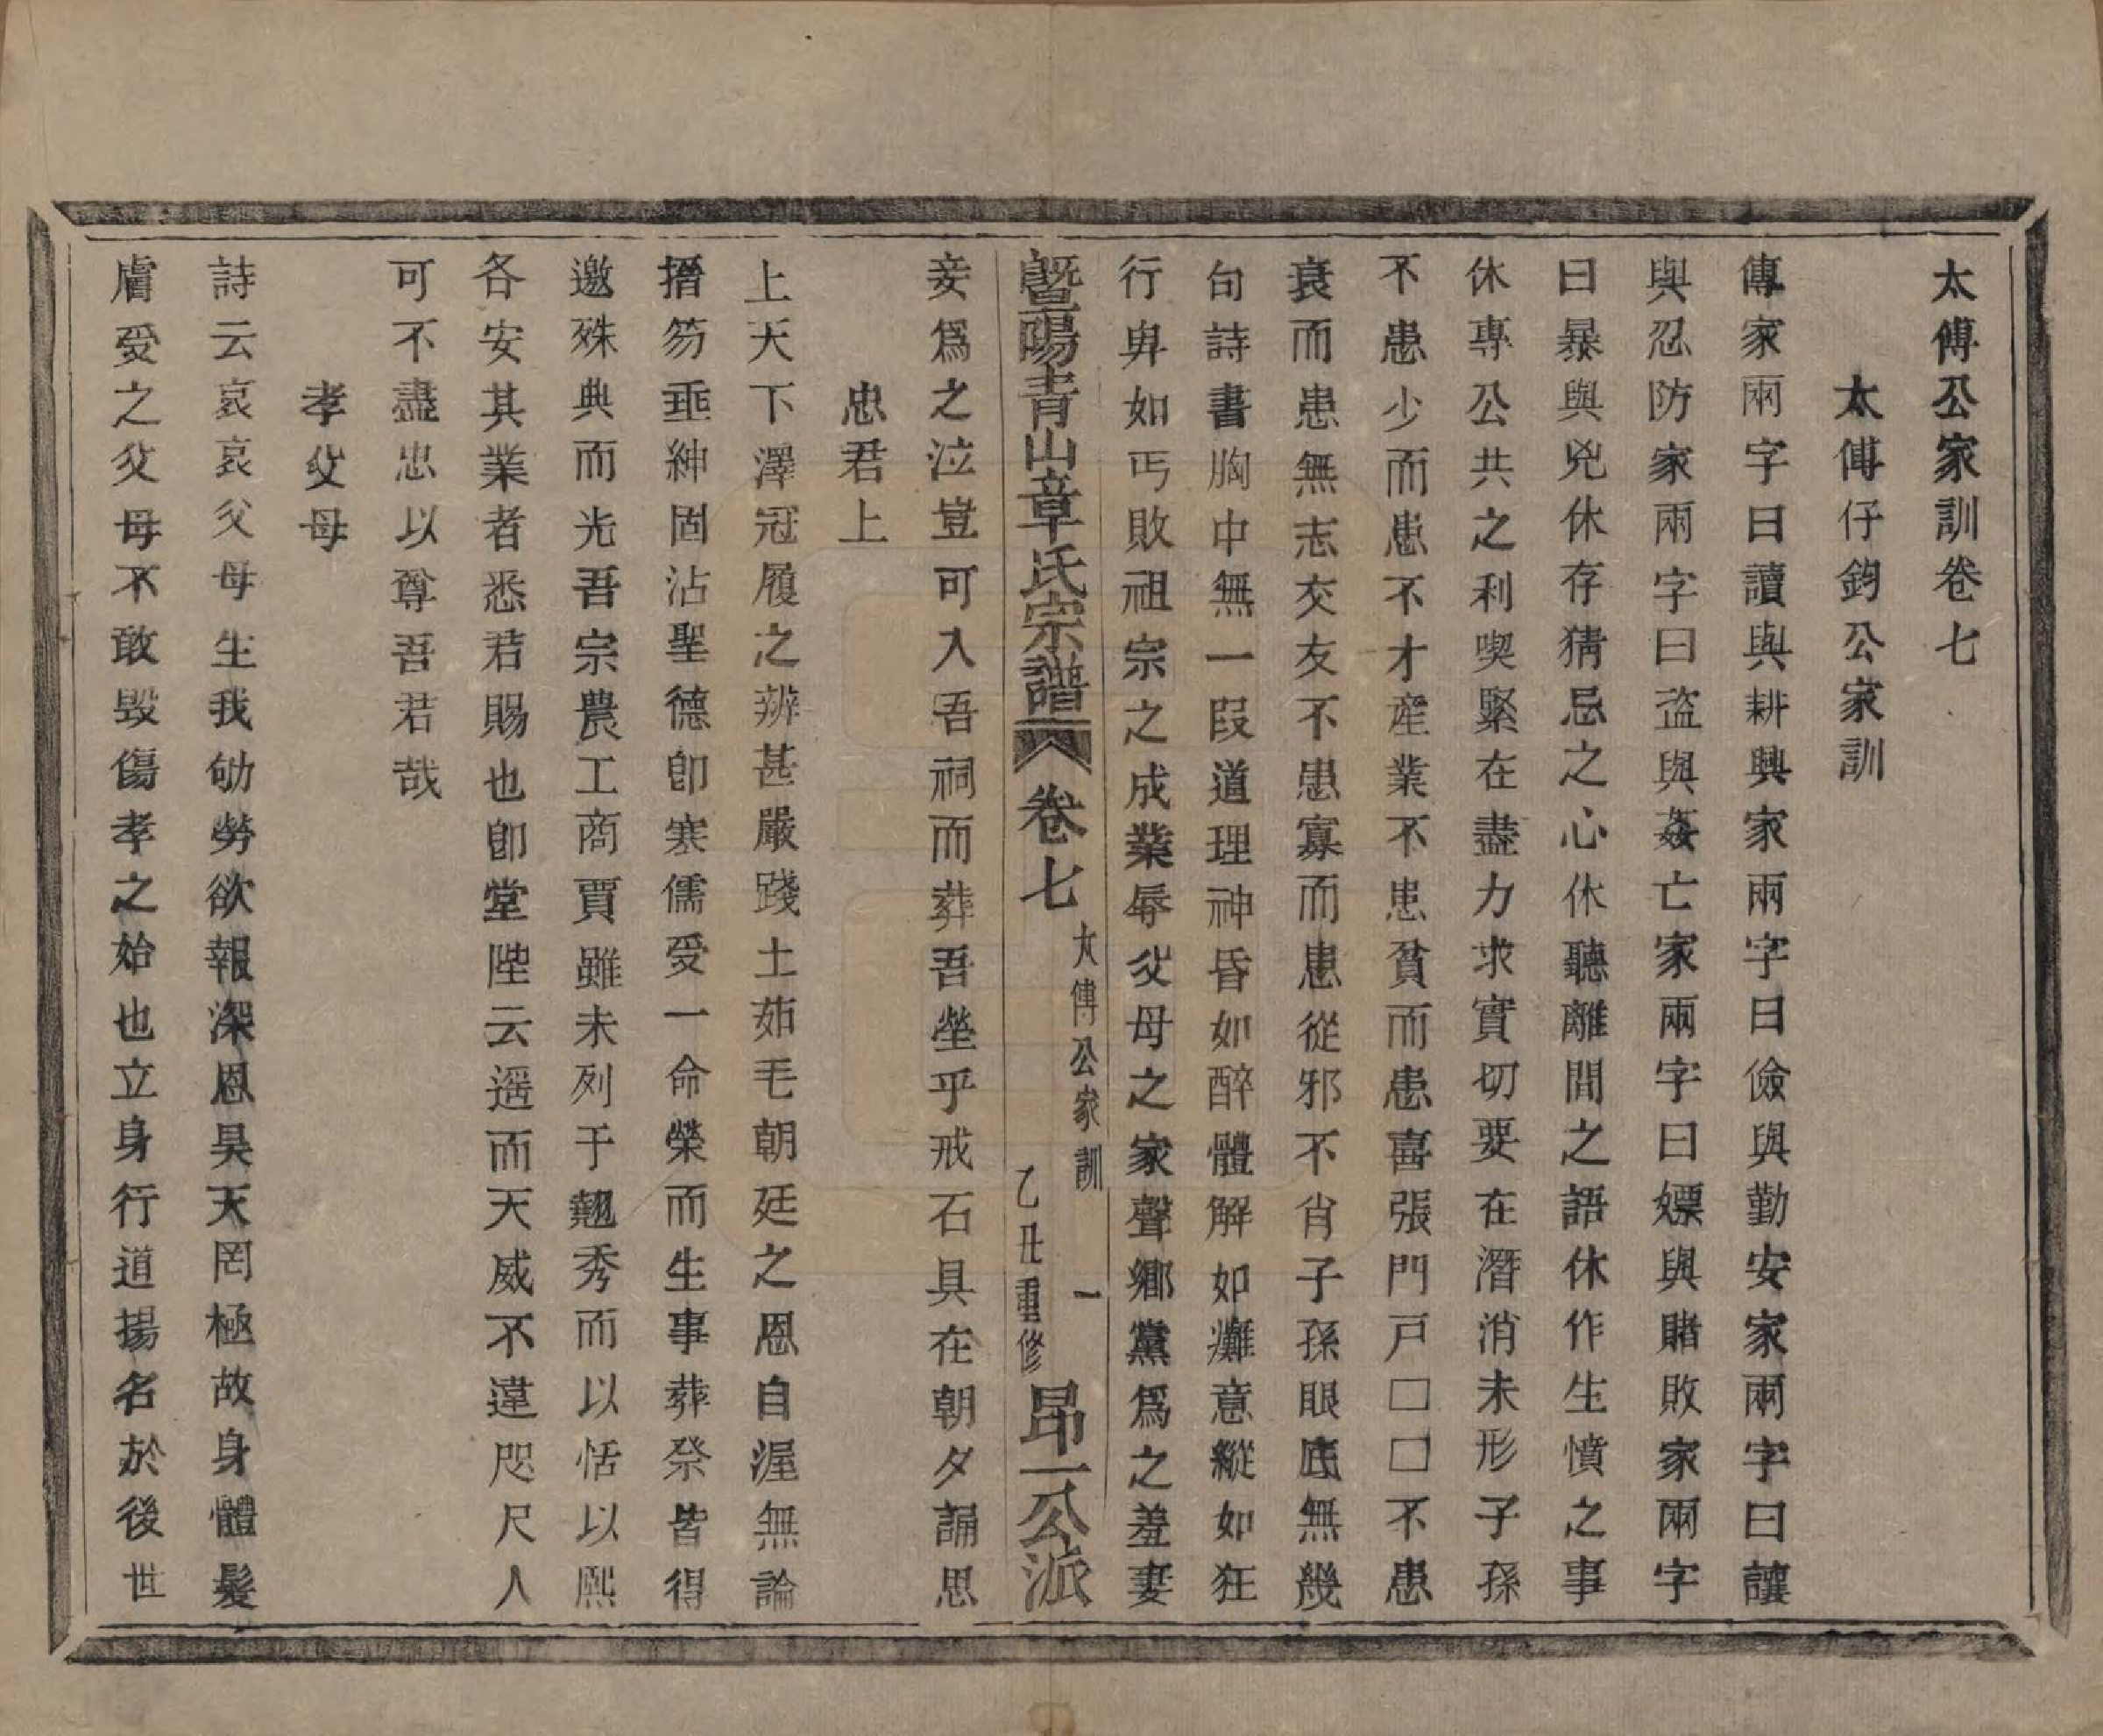 太傅公家訓卷七
太傅仔鈞公家訓
傳家兩字曰讀與耕興家兩字曰儉與勤安家兩字曰讓
與忍防家兩字曰盜與姦亡家兩字曰嫖與賭敗家兩字
曰暴與兇休存猜忌之心休聽離間之語休作生憤之事
休專公共之利喫緊在盡力求實切要在潛消未形子孫
不患少而患不才產業不患貧而患喜張門戶□□不患
衰而患無志交友不患寡而患從邪不肖子孫眼底無幾
句詩書胸中無一段道理神昏如醉體解如癱意縱如狂
行卑如丐敗祖宗之成業辱父母之家聲鄉黨爲之羞妻
暨陽青山章氏宗譜 卷七 太傅公家訓 一 乙丑重修 昂一公派
妾爲之泣豈可入吾祠而葬吾塋乎戒石具在朝夕誦思
忠君上
上天下澤冠履之辨甚嚴踐土茹毛朝廷之恩自渥無論
搢笏垂紳固沾聖德卽寒儒受一命榮而生事葬祭皆得
邀殊典而光吾宗農工商賈雖未列于翹秀而以恬以熙
各安其業者悉君賜也卽堂陛云遥而天威不違咫尺人
可不盡忠以尊吾君哉
孝父母
詩云哀哀父母生我劬勞欲報深恩昊天罔極故身體髮
膚受之父母不敢毀傷孝之始也立身行道揚名於後世